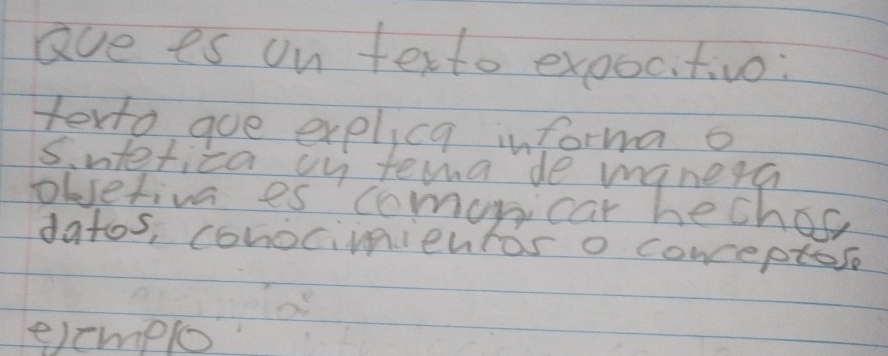 Que es un texto expocitivo:
texto que explica informa o
sintetiza un tema de manera
obsetiva es comunicar hechos,
datos, conocimientos o conceptos.
ejemplo